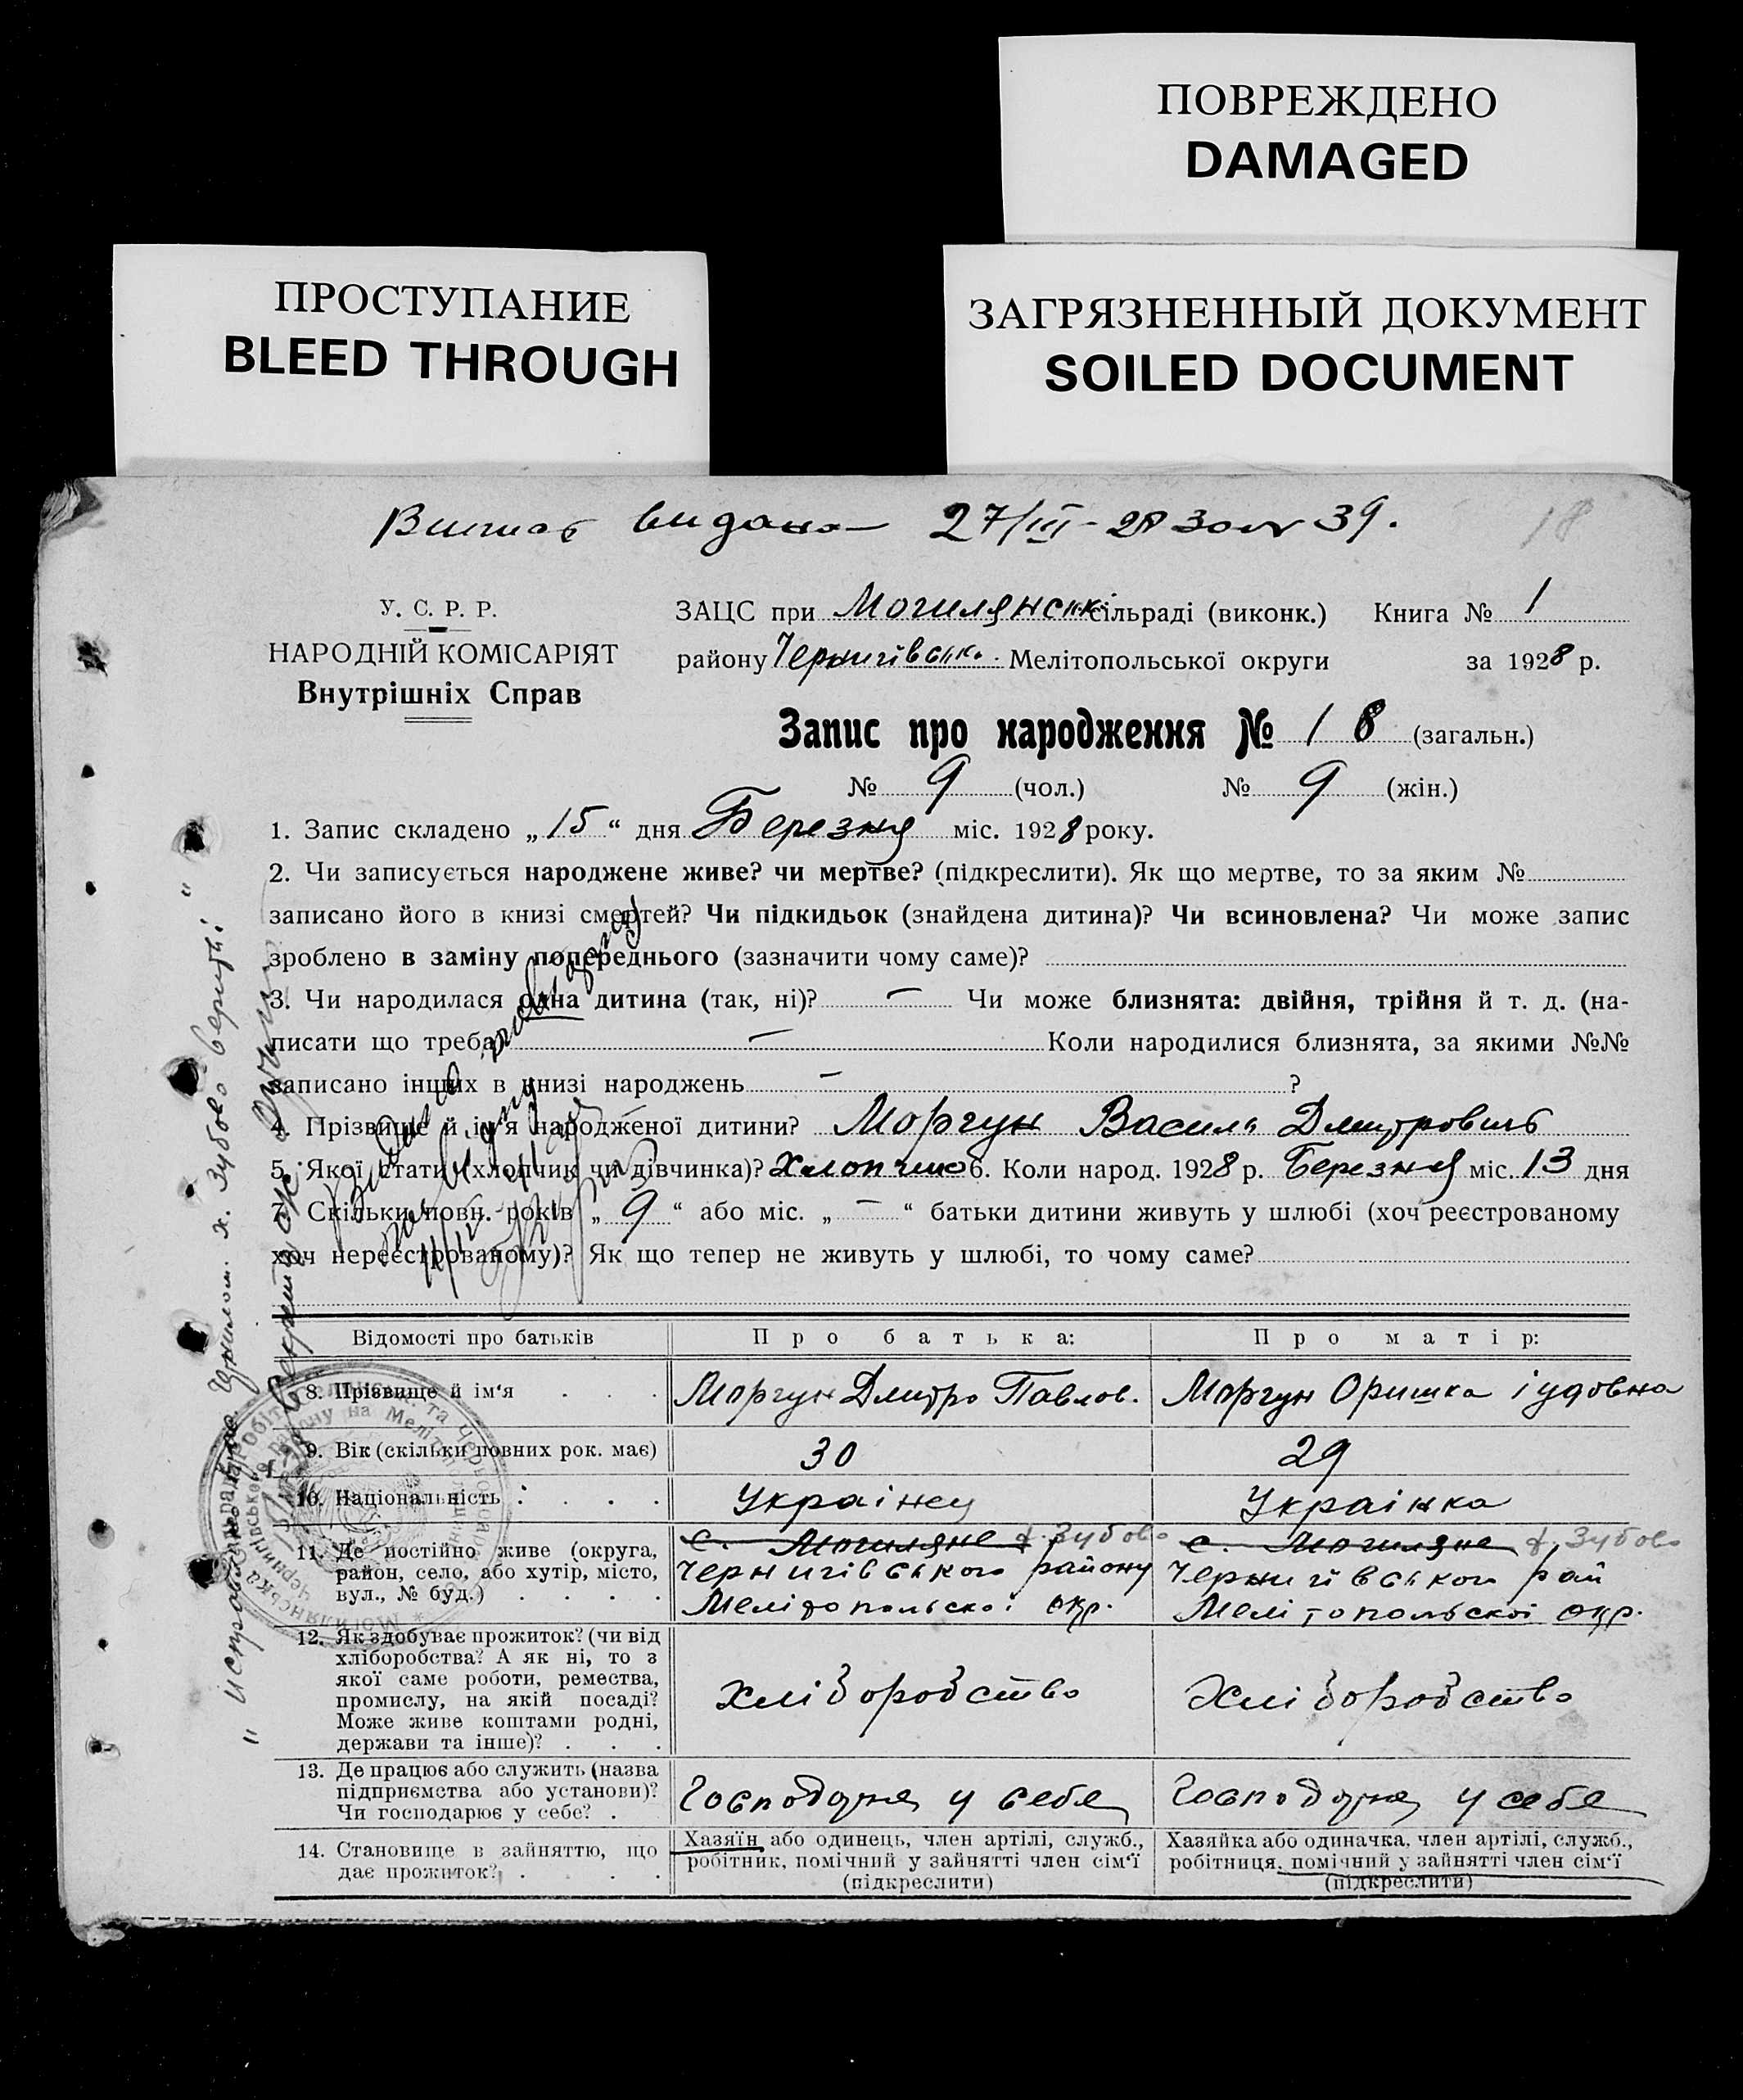 ПОВРЕЖДЕНО
DAMAGED
ПРОСТУПАНИЕ
BLEED THROUGH
ЗАГРЯЗНЕННЫЙ ДОКУМЕНТ
SOILED DOCUMENT
видана 27/III 39.
18
У. С. Р. Р.
НАРОДНІЙ КОМІСАРІЯТ
Внутрішніх Справ
ЗАЦС при Могилянськ. сільраді (виконк.) Книга № 1
району Чернигівськ. Мелітопольської округи за 1928 р.
Запис про народження № 18 (загальн.)
№ 9 (чол.) № 9 (жін.)
1. Запис складено „ 15 “ дня Березня міс. 1928 року.
2. Чи записується народжене живе? чи мертве? (підкреслити). Як що мертве, то за яким №
записано його в книзі смертей? Чи підкидьок (знайдена дитина)? Чи всиновлена? Чи може запис
зроблено в заміну попереднього (зазначити чому саме)?
3. Чи народилася одна дитина (так, ні)? — Чи може близнята: двійня, трійня й т. д. (на-
писати що треба) — Коли народилися близнята, за якими №№
записано інших в книзі народжень — ?
4. Прізвище й ім'я народженої дитини? Моргун Василь Дмитрович
5. Якої стати (хлопчик чи дівчинка)? Хлопчик 6. Коли народ. 1928 р. Березня міс. 13 дня
7. Скільки повн. років „ 9 “ або міс. „ — “ батьки дитини живуть у шлюбі (хоч реєстрованому
хоч нереєстрованому)? Як що тепер не живуть у шлюбі, то чому саме?
Відомості про батьків Про батька: Про матір:
8. Прізвище й ім'я . . . Моргун Дмитро Павлов. Моргун Оришка іудовна
9. Вік (скільки повних рок. має) 30 29
10. Національність : . . . Українец Українка
11. Де постійно живе (округа, район, село, або хутір, місто, вул., № буд.) . . . .
с. Могиляне х. Зубово
Чернигівського району
Мелітопольскоі окр.
с. Могиляне х. Зубово
Чернигівського рай
Мелітопольскоі окр.
12. Як здобуває прожиток? (чи від
хліборобства? А як ні, то з
якої саме роботи, ремества,
промислу, на якій посаді?
Може живе коштами родні,
держави та інше)? . . .
Хліборобство
Хліборобство
13. Де працює або служить (назва
підприємства або установи)?
Чи господарює у себе? .
Господарює у себе
Господарює у себе
14. Становище в зайняттю, що
дає прожиток? . . .
Хазяїн або одинець, член артілі, служб.,
робітник, помічний у зайнятті член сім'ї
(підкреслити)
Хазяйка або одиначка, член артілі, служб.,
робітниця, помічний у зайнятті член сім'ї
(підкреслити)